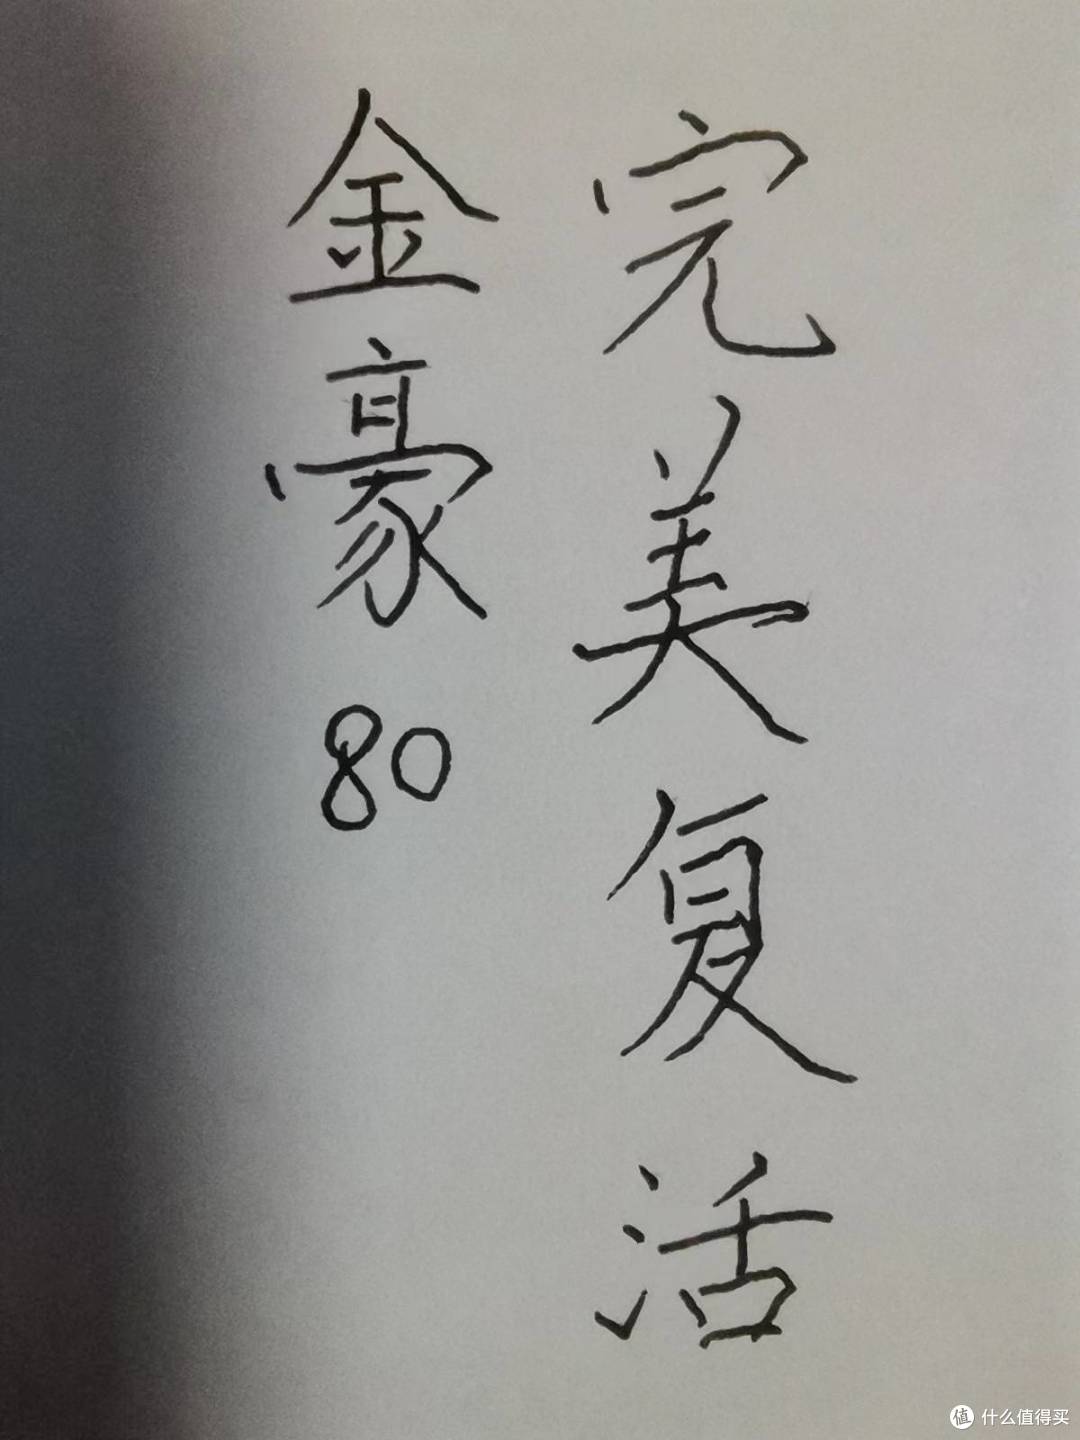 完美复活
金豪80
值 什么值得买